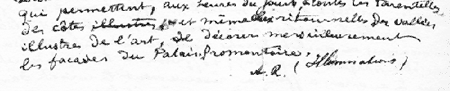 qui permettent, aux heures du jour, à toutes les tarentelles
des côtes illustres et même aux ritournelles des vallées
illustres de l'art, de décorer merveilleusement
les façades du Palais-Promontoire.
A. R. (Illuminations)